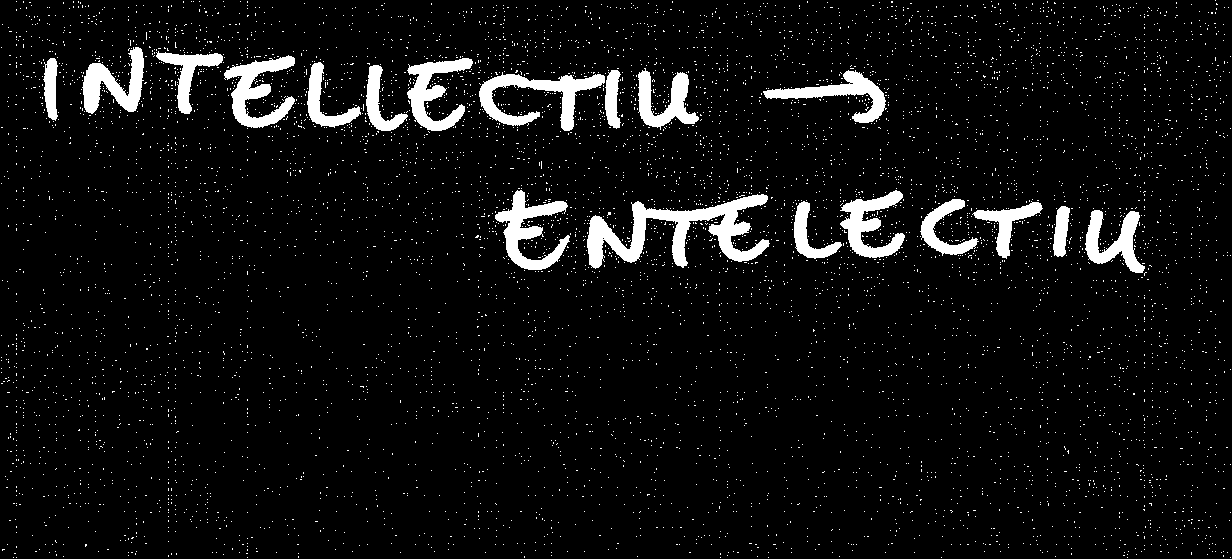 INTELLECTIU →
ENTELECTIU